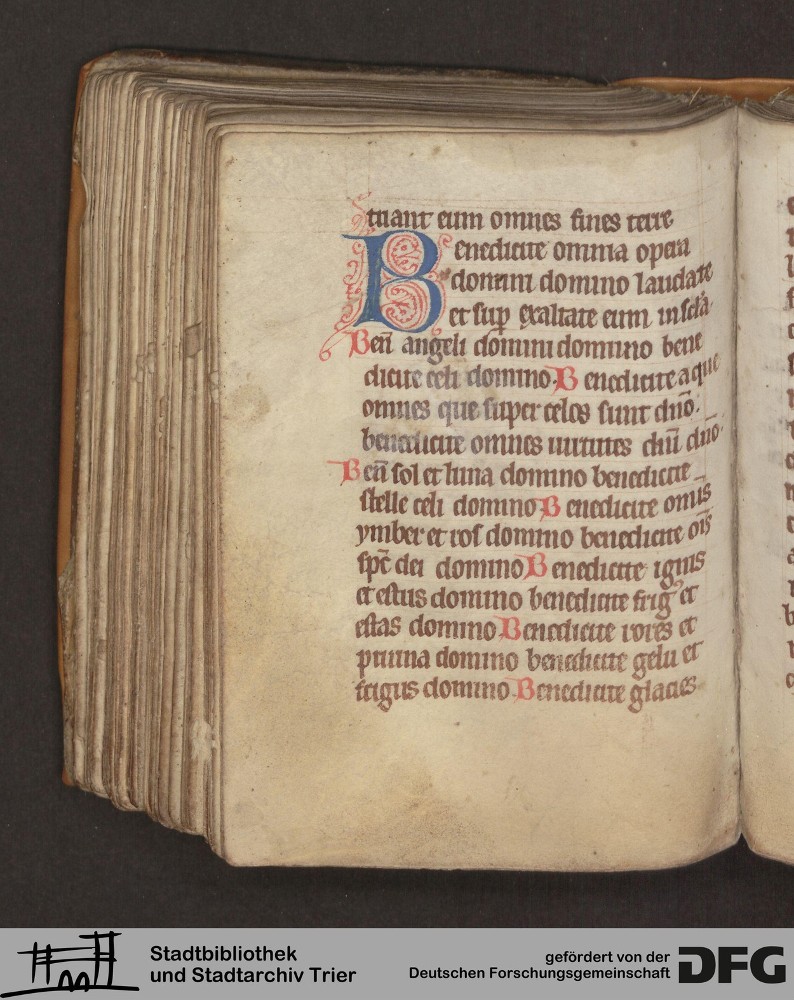 tuant eum omnes fines terre
Benedicite omnia opera
domini domino laudate
et sup exaltate eum in scla.
Ben̄ angeli domini domino bene
dicite celi domino. Benedicite aque
omnes que super celos sunt dn̄o.
benedicite omnes uirtutes dn̄i dn̄o.
Ben̄ sol et luna domino benedicite
stelle celi domino Benedicite omīs
ymber et ros domino benedicite oīs
sp̄c dei domino Benedicite ignis
et estus domino benedicite frigꝰ et
estas domino Benedicite rores et
pruina domino benedicite gelu et
frigus domino Benedicite glacies
Stadtbibliothek
und Stadtarchiv Trier
gefördert von der
Deutschen Forschungsgemeinschaft
DFG